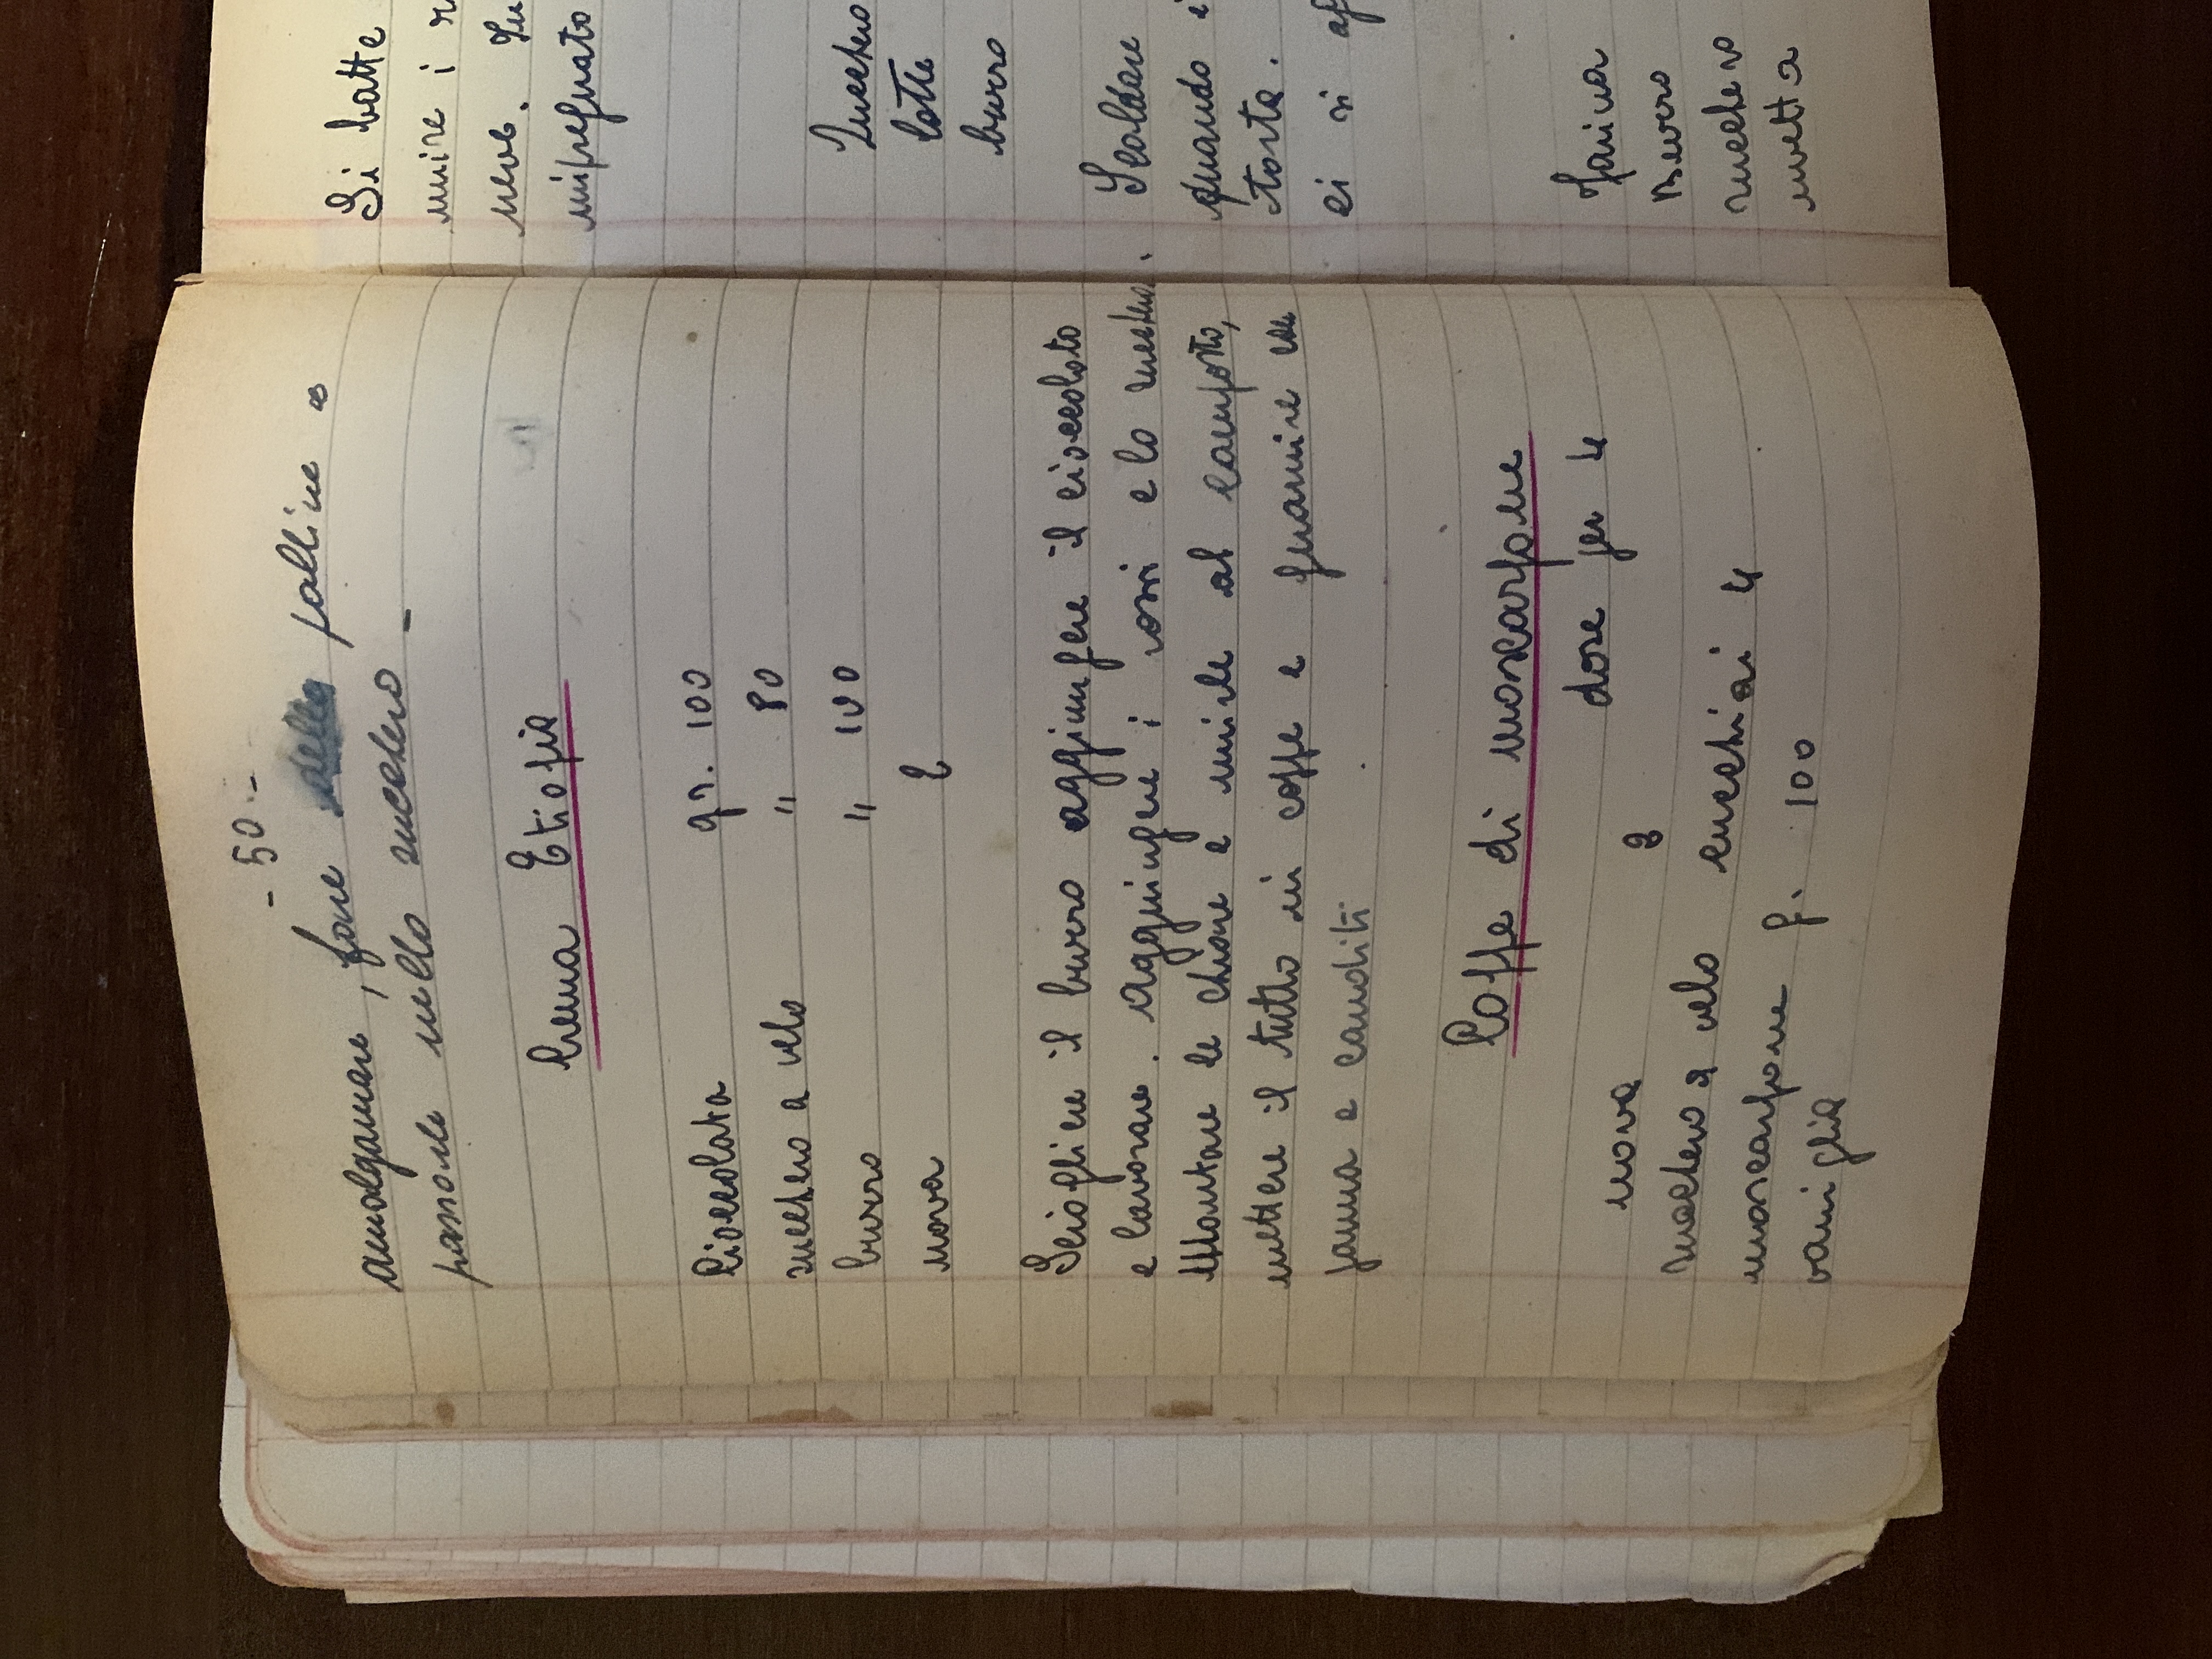 - 50 -
amalgamare, fare delle palline e
passarle nello zucchero -
Crema Etiopia
Cioccolata gr. 100
zucchero a velo " 80
burro " 100
uova 2
Sciogliere il burro aggiungere il cioccolato
e lavorare. Aggiungere i rossi e lo zucchero.
Montare le chiare e unirle al composto,
mettere il tutto in coppe e guarnire con
panna e canditi
Coppe di mascarpone
dose per 4
uova 2
zucchero a velo cucchiai 4
mascarpone g. 100
vaniglia
Si batte
unire i
neve.
impregnato
Zucchero
latte
burro
Scaldare
quando
torta.
ci si
Farina
Burro
zucchero